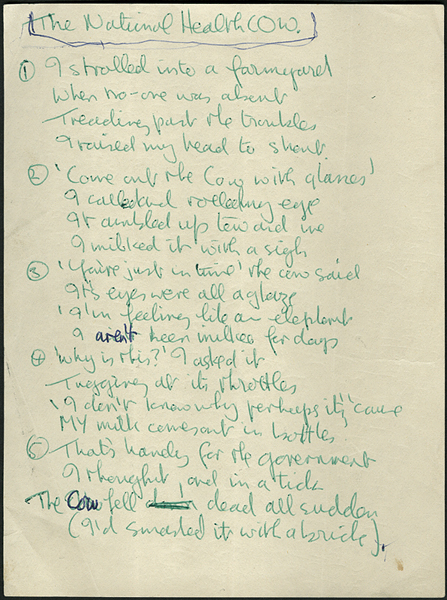 The National Health COW.
① I strolled into a farmyard
When no-one was about
Treading past the troubles
I raised my head to shout.
② 'Come out the Cow with glasses'
I called and rolled my eye
It ambled up toward me
I milked it with a sigh
③ 'You're just in time' the cow said
It's eyes were all aglaze
'I'm feeling like an elephant
I aren't been milked for days
④ 'Why is this?' I asked it
Tugging at its throttles
'I don't know why perhaps it's 'cause
MY milk comes out in bottles'
⑤ That's handy for the government
I thought, and in a tick
The Cow fell dead all sudden
(I'd smashed it with a brick).